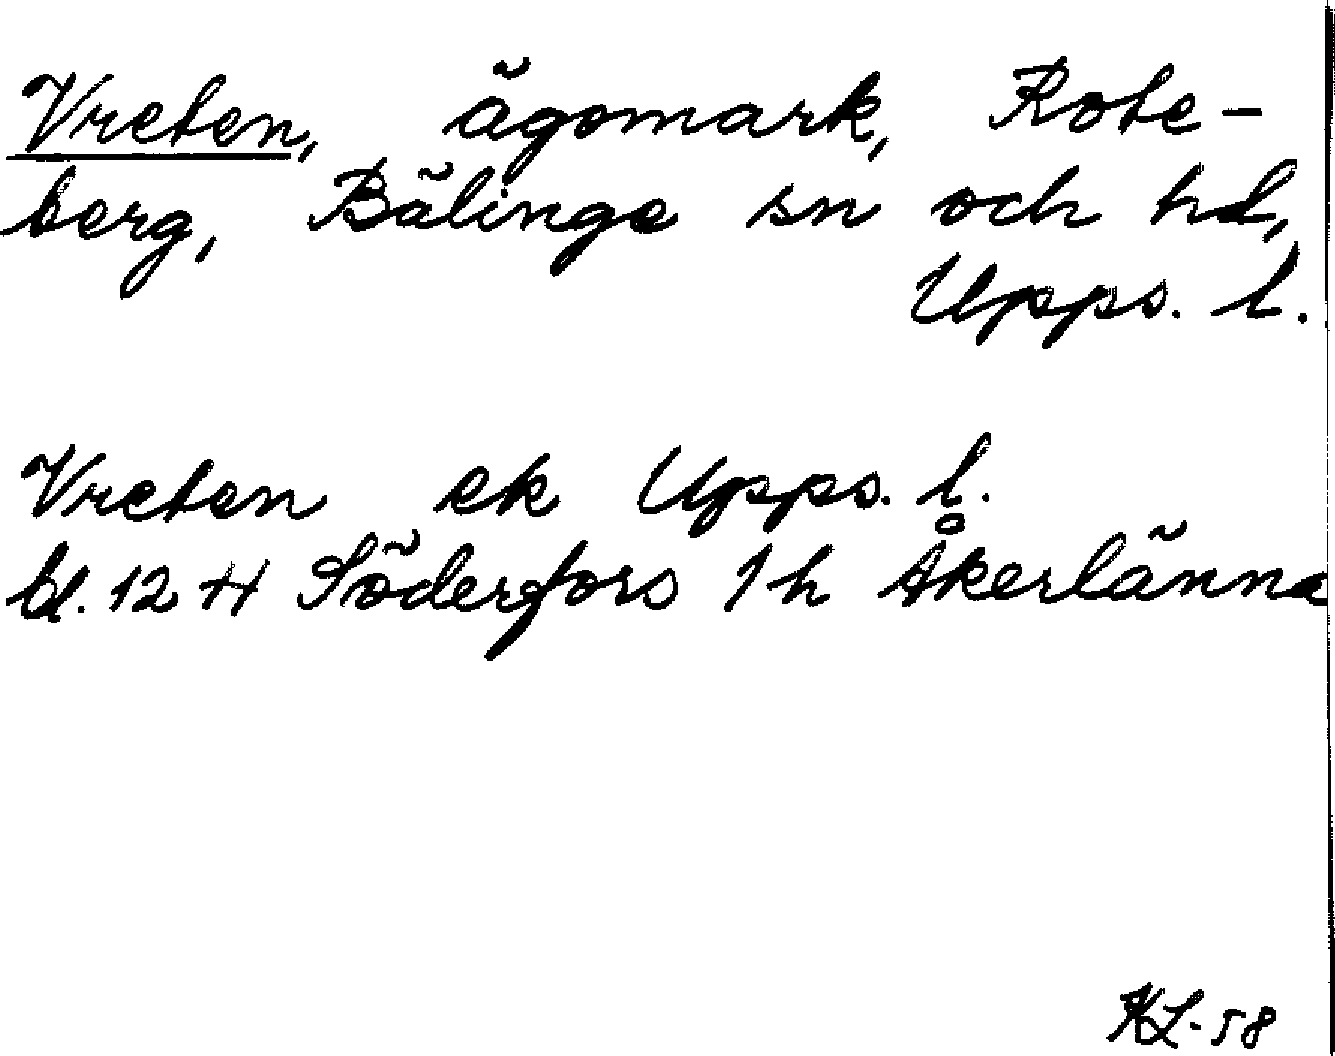 Vreten, ägomark, Rote-
berg, Bälinge sn och hd,
Upps. l.
Vreten ek Upps. l.
bl. 12 H Söderfors 1h Åkerlänna
KL-58